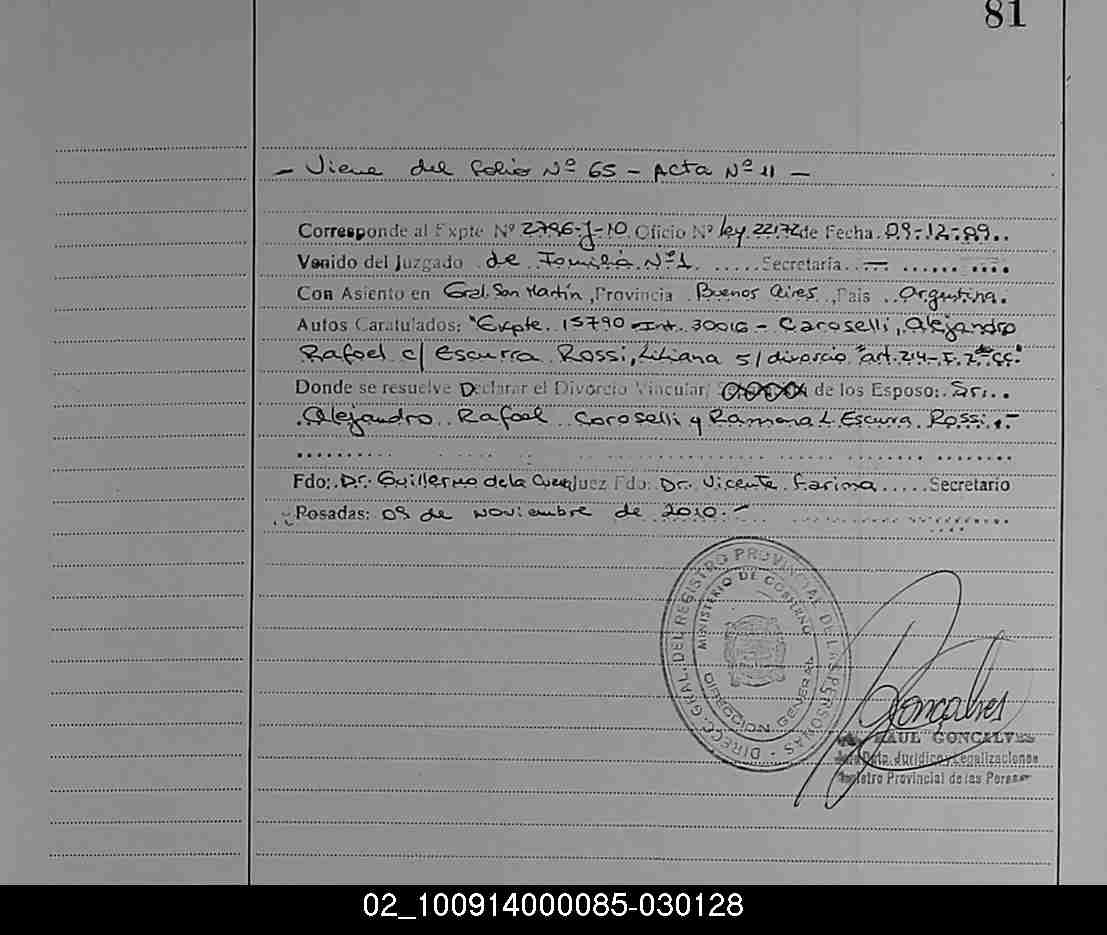 81
- Viene del folio Nº 65 - Acta Nº 11 -
Corresponde al Expte Nº 2796-J-10 Oficio Nº ley 22172 de Fecha 09-12-09..
Venido del Juzgado de Familia Nº 1. .....Secretaría..— ...... ....
Con Asiento en Gral. San Martín, Provincia Buenos Aires, País Argentina.
Autos Caratulados: "Expte. 15790 Int. 30016 - Caroselli, Alejandro
Rafael c/ Escurra Rossi, Liliana s/ divorcio "art. 214-I. 2º CC."
Donde se resuelve Declarar el Divorcio Vincular, de los Esposo: Sr...
Alejandro Rafael Caroselli y Ramona L. Escurra Rossi.-
Fdo: Dr. Guillermo de la Cueva Juez Fdo: Dr. Vicente Farina.....Secretario
Posadas: 09 de Noviembre de 2010.-
DIRECC. GRAL. DEL REGISTRO PROVINCIAL DE LAS PERSONAS
MINISTERIO DE GOBIERNO
DIRECCION GENERAL
Gonçalves
RAUL GONCALVES
Dpto. Jurídico y Legalizaciones
Registro Provincial de las Personas
02_100914000085-030128